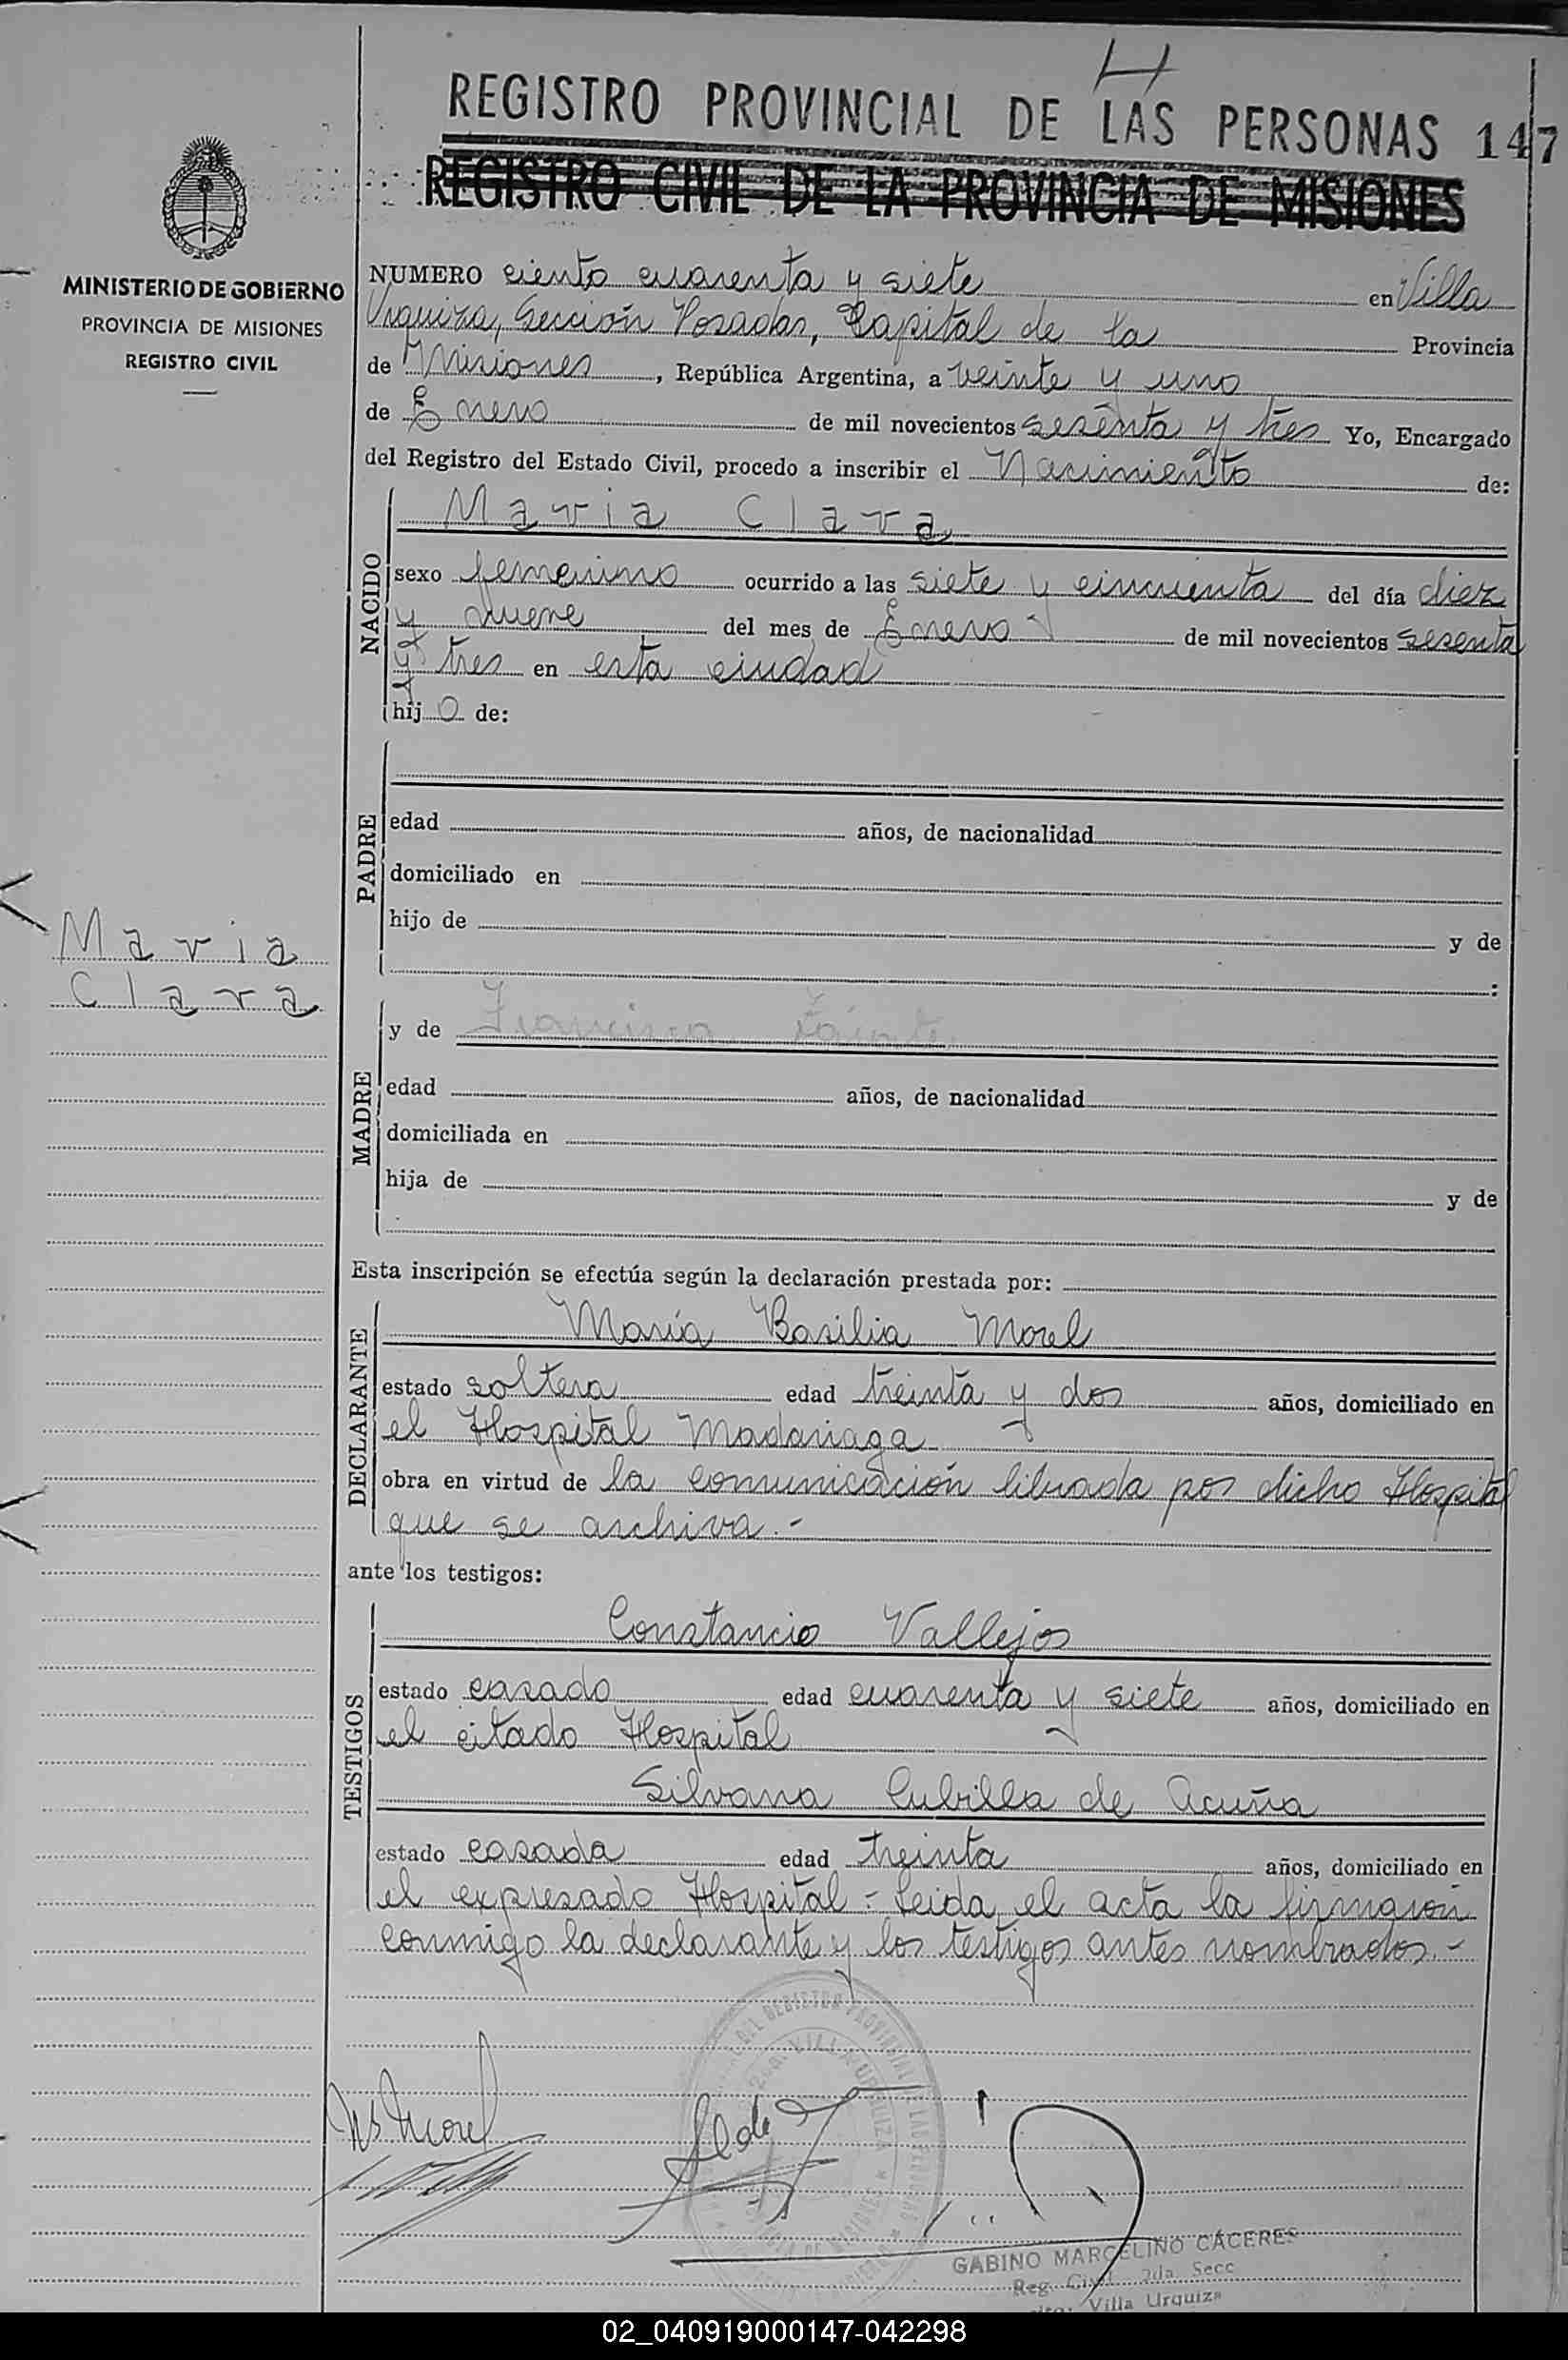 REGISTRO PROVINCIAL DE LAS PERSONAS 147
REGISTRO CIVIL DE LA PROVINCIA DE MISIONES
MINISTERIO DE GOBIERNO
PROVINCIA DE MISIONES
REGISTRO CIVIL
NUMERO ciento cuarenta y siete en Villa
Urquiza, Sección Posadas, Capital de la Provincia
de Misiones, República Argentina, a veinte y uno
de Enero de mil novecientos sesenta y tres Yo, Encargado
del Registro del Estado Civil, procedo a inscribir el Nacimiento de:
NACIDO
Maria Clara
sexo femenino ocurrido a las siete y cincuenta del día diez
y nueve del mes de Enero de mil novecientos sesenta
y tres en esta ciudad
hijo de:
PADRE
edad años, de nacionalidad
domiciliado en
hijo de y de
:
Maria
Clara
MADRE
y de Francisca
edad años, de nacionalidad
domiciliada en
hija de y de
Esta inscripción se efectúa según la declaración prestada por:
DECLARANTE
María Basilia Morel
estado soltera edad treinta y dos años, domiciliado en
el Hospital Madariaga
obra en virtud de la comunicación librada por dicho Hospital
que se archiva.-
ante los testigos:
TESTIGOS
Constancio Vallejos
estado casado edad cuarenta y siete años, domiciliado en
el citado Hospital
Silvana Cubilla de Acuña
estado casada edad treinta años, domiciliado en
el expresado Hospital - Leida el acta la firmaron
conmigo la declarante y los testigos antes nombrados.-
Morel
GABINO MARCELINO CÁCERES
Reg. Civil 2da. Secc
Villa Urquiza
02_040919000147-042298